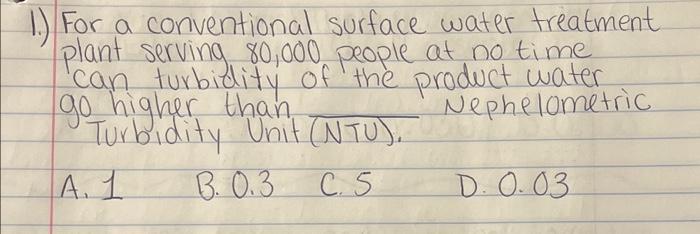 1.) For a conventional surface water treatment
plant serving 80,000 people at no time
can turbidity of the product water
go higher than ______ Nephelometric
Turbidity Unit (NTU).
A. 1 B. 0.3 C. 5 D. 0.03